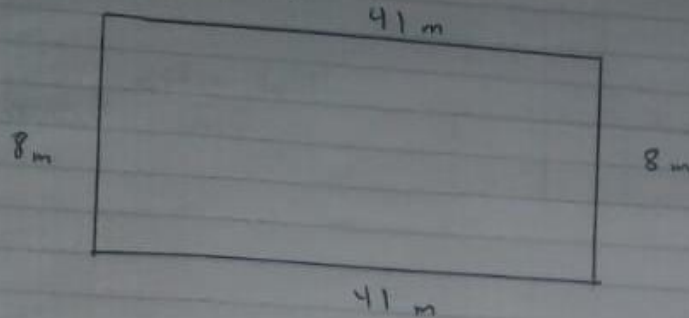 41 m
8 m
8 m
41 m